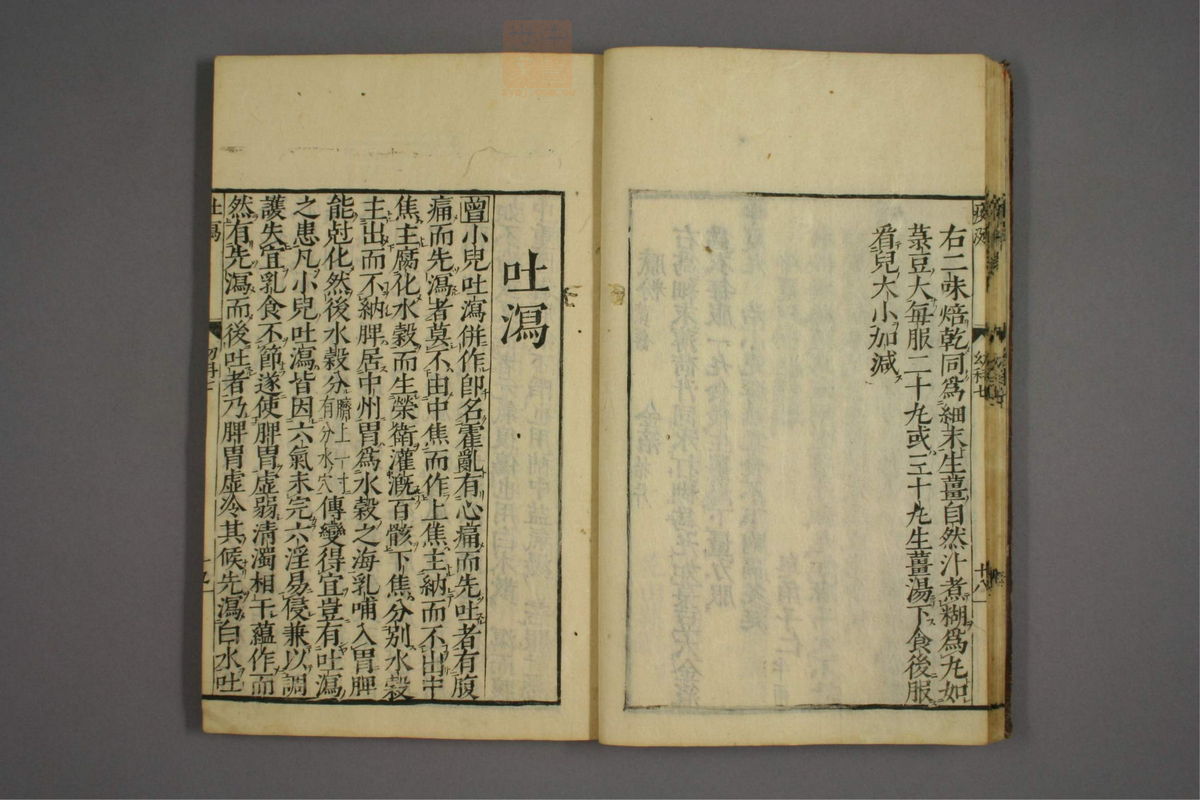 右二味焙乾同爲細末生薑自然汁煮糊爲丸如
菉豆大每服二十丸或三十丸生薑湯下食後服
看兒大小加減
幼科七
十八
吐瀉
曾小兒吐瀉併作卽名霍亂有心痛而先吐者有腹
痛而先瀉者莫不由中焦而作上焦主納而不出中
焦主腐化水穀而生榮衛灌漑百骸下焦分別水穀
主出而不納脾居中州胃爲水穀之海乳哺入胃脾
能尅化然後水穀分臍上一寸有分水穴傳變得宜豈有吐瀉
之患凡小兒吐瀉皆因六氣未完六淫易侵兼以調
護失宜乳食不節遂使脾胃虛弱清濁相干蘊作而
然有先瀉而後吐者乃脾胃虛冷其候先瀉白水吐
吐瀉